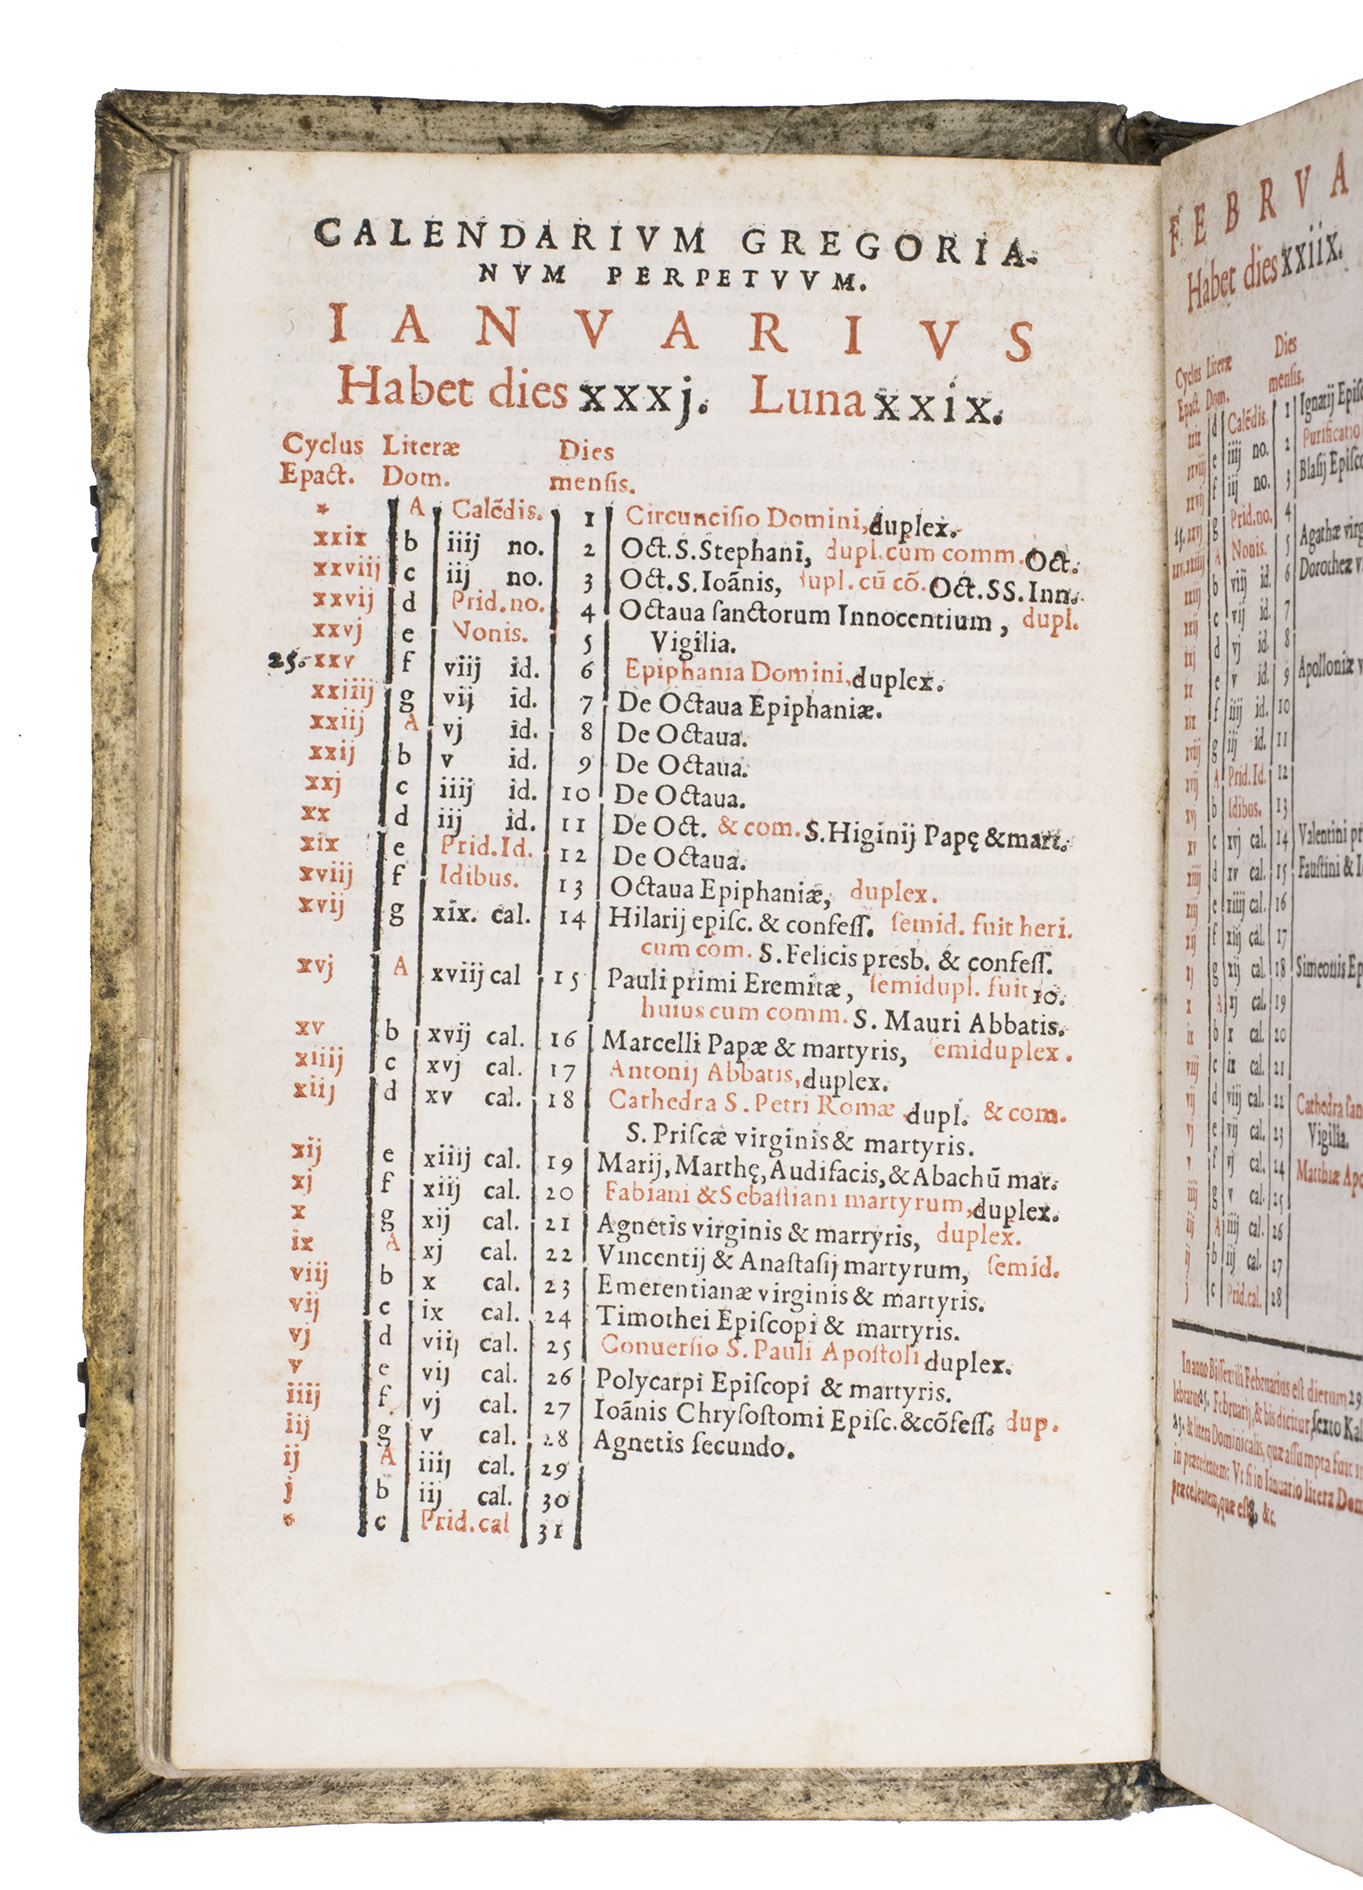 CALENDARIVM GREGORIA-
NVM PERPETVVM.
IANVARIVS
Habet dies xxxj. Luna xxix.
Cyclus Literæ Dies
Epact. Dom. mensis.
* A Calẽdis. 1 Circuncisio Domini, duplex.
xxix b iiij no. 2 Oct. S. Stephani, dupl. cum comm. Oct.
xxviij c iij no. 3 Oct. S. Ioãnis, dupl. cũ cõ. Oct. SS. Inn.
xxvij d Prid. no. 4 Octaua ſanctorum Innocentium, dupl.
xxvj e Nonis. 5 Vigilia.
25. xxv f viij id. 6 Epiphania Domini, duplex.
xxiiij g vij id. 7 De Octaua Epiphaniæ.
xxiij A vj id. 8 De Octaua.
xxij b v id. 9 De Octaua.
xxj c iiij id. 10 De Octaua.
xx d iij id. 11 De Oct. & com. S. Higinij Papę & mart.
xix e Prid. Id. 12 De Octaua.
xviij f Idibus. 13 Octaua Epiphaniæ, duplex.
xvij g xix. cal. 14 Hilarij epiſc. & confeſſ. ſemid. fuit heri.
cum com. S. Felicis presb. & confeſſ.
xvj A xviij cal 15 Pauli primi Eremitæ, ſemidupl. fuit 10.
huius cum comm. S. Mauri Abbatis.
xv b xvij cal. 16 Marcelli Papæ & martyris, ſemiduplex.
xiiij c xvj cal. 17 Antonij Abbatis, duplex.
xiij d xv cal. 18 Cathedra S. Petri Romæ dupl. & com.
S. Priſcæ virginis & martyris.
xij e xiiij cal. 19 Marij, Marthę, Audifacis, & Abachũ mar.
xj f xiij cal. 20 Fabiani & Sebaſtiani martyrum, duplex.
x g xij cal. 21 Agnetis virginis & marryris, duplex.
ix A xj cal. 22 Vincentij & Anaſtaſij martyrum, ſemid.
viij b x cal. 23 Emerentianæ virginis & martyris.
vij c ix cal. 24 Timothei Epiſcopi & martyris.
vj d viij cal. 25 Conuerſio S. Pauli Apoſtoli duplex.
v e vij cal. 26 Polycarpi Epiſcopi & martyris.
iiij f vj cal. 27 Ioãnis Chryſoſtomi Epiſc. & cõfeſſ. dup.
iij g v cal. 28 Agnetis ſecundo.
ij A iiij cal. 29
j b iij cal. 30
* c Prid. cal 31
FEBRVA
Habet dies xxiix.
Cyclus Literæ Dies
Epact. Dom. mensis.
d Calẽdis. 1 Ignatij Epiſc
e iiij no. 2 Purificatio
f iij no. 3 Blaſij Epiſco
g Prid. no. 4
A Nonis. 5 Agathæ virg
b viij id. 6 Dorotheæ v
c vij id. 7
d vj id. 8
e v id. 9 Apolloniæ v
f iiij id. 10
g iij id. 11
A Prid. Id. 12
b Idibus. 13
c xvj cal. 14 Valentini pr
d xv cal. 15 Fauſtini & I
e xiiij cal. 16
f xiij cal. 17
g xij cal. 18 Simeonis Ep
A xj cal. 19
b x cal. 20
c ix cal. 21
d viij cal. 22 Cathedra ſan
e vij cal. 23 Vigilia.
f vj cal. 24 Matthiæ Apo
g v cal. 25
A iiij cal. 26
b iij cal. 27
c Prid. cal. 28
In anno Biſſextili Februarius eſt dierum 29
lebratur 25. Februarij, & bis dicitur ſexto Kal
25. & litera Dominicalis, quæ aſſumpta fuit in
in præcedentem: Vt ſi in Ianuario litera Dom
præcedentem, quæ eſt g, &c.